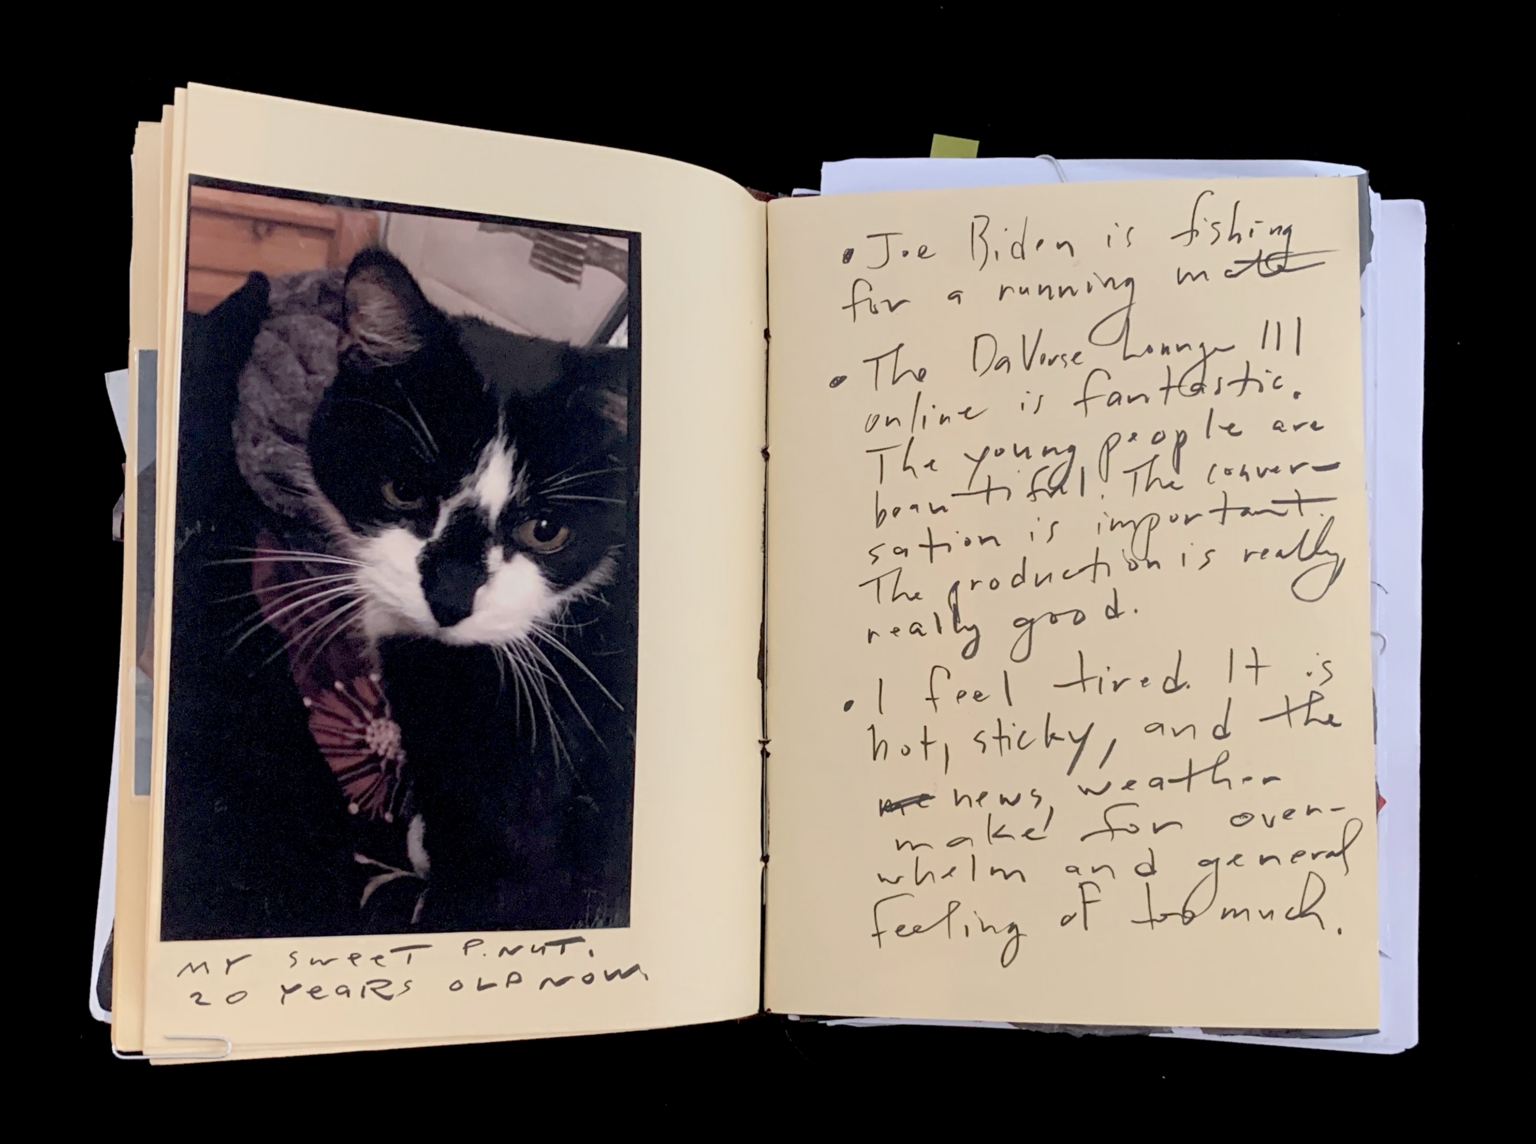 MY SWEET P.NUT.
20 YEARS OLD NOW.
• Joe Biden is fishing
for a running mate
• The DaVerse Lounge !!!
online is fantastic.
The young people are
beautiful. The conver-
sation is important.
The production is really
really good.
• I feel tired. It is
hot, sticky, and the
news, weather
make for over-
whelm and general
feeling of too much.